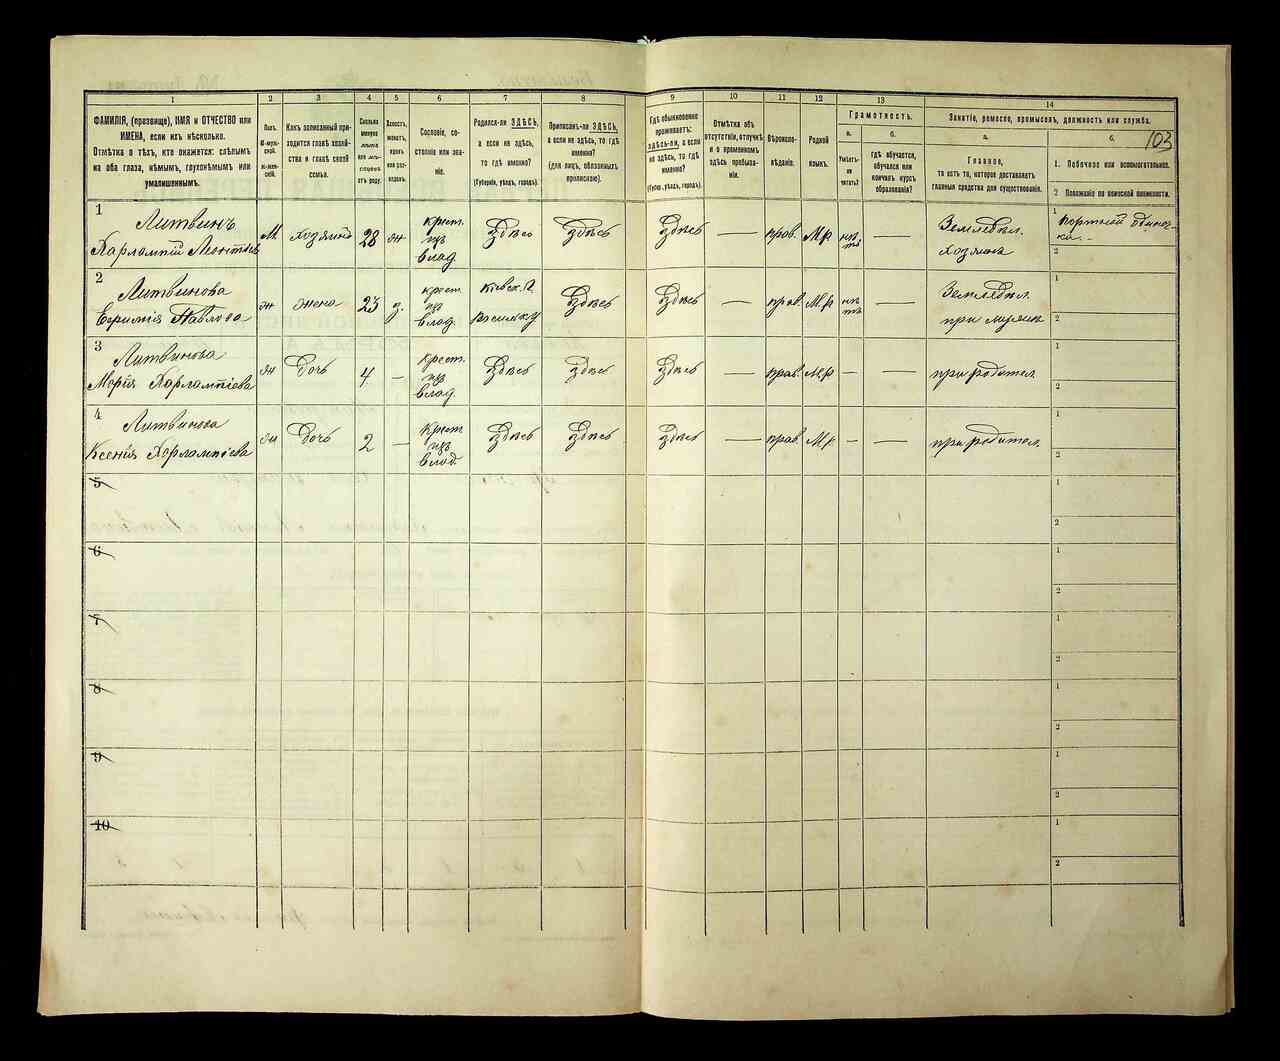 103
1
2
3
4
5
6
7
8
9
10
11
12
13
14
ФАМИЛІЯ, (прозвище), ИМЯ и ОТЧЕСТВО или
ИМЕНА, если ихъ нѣсколько.
Отмѣтка о тѣхъ, кто окажется: слѣпымъ
на оба глаза, нѣмымъ, глухонѣмымъ или
умалишеннымъ.
Полъ.
М-муж-
ской.
Ж-жен-
скій.
Какъ записанный при-
ходится главѣ хозяй-
ства и главѣ своей
семьи.
Сколько
минуло
лѣтъ
или мѣ-
сяцевъ
отъ роду.
Холостъ,
женатъ,
вдовъ
или раз-
веденъ.
Сословіе, со-
стояніе или зва-
ніе.
Родился-ли ЗДѢСЬ,
а если не здѣсь,
то гдѣ именно?
(Губернія, уѣздъ, городъ).
Приписанъ-ли ЗДѢСЬ,
а если не здѣсь, то гдѣ
именно?
(для лицъ, обязанныхъ
припискою).
Гдѣ обыкновенно
проживаетъ:
здѣсь-ли, а если
не здѣсь, то гдѣ
именно?
(Губерн., уѣздъ, городъ).
Отмѣтка объ
отсутствіи, отлучкѣ
и о временномъ
здѣсь пребыва-
ніи.
Вѣроиспо-
вѣданіе.
Родной
языкъ.
Грамотность.
а.
Умѣетъ-
ли
читать?
б.
гдѣ обучается,
обучался или
кончилъ курсъ
образованія?
Занятіе, ремесло, промыселъ, должность или служба.
а.
Главное,
то есть то, которое доставляетъ
главныя средства для существованія.
б.
1. Побочное или вспомогательное.
2 Положеніе по воинской повинности.
1
Литвинъ
Харлампій
М
хозяинъ
28
ж
крест.
изъ
влад.
Здѣсь
Здѣсь
Здѣсь
—
прав.
М.р.
нѣ
тъ
—
Земледѣл.
хозяинъ
1
портной одиноч-
ка. -
2
2
Литвинова
Павлова
ж
жена
23
з.
крест.
изъ
влад.
Кіевск. г.
Здѣсь
Здѣсь
—
прав.
М.р.
нѣ
тъ
—
Земледѣл.
при мужѣ
1
2
3
Литвинова
Марія Харлампіева
ж
дочь
4
—
крест.
изъ
влад.
Здѣсь
Здѣсь
Здѣсь
—
прав.
М.р.
—
—
при родител.
1
2
4
Литвинова
Ксенія Харлампіева
ж
дочь
2
—
крест.
изъ
влад.
Здѣсь
Здѣсь
Здѣсь
—
прав.
М.р.
—
—
при родител.
1
2
5
1
2
6
1
2
7
1
2
8
1
2
9
1
2
10
1
2